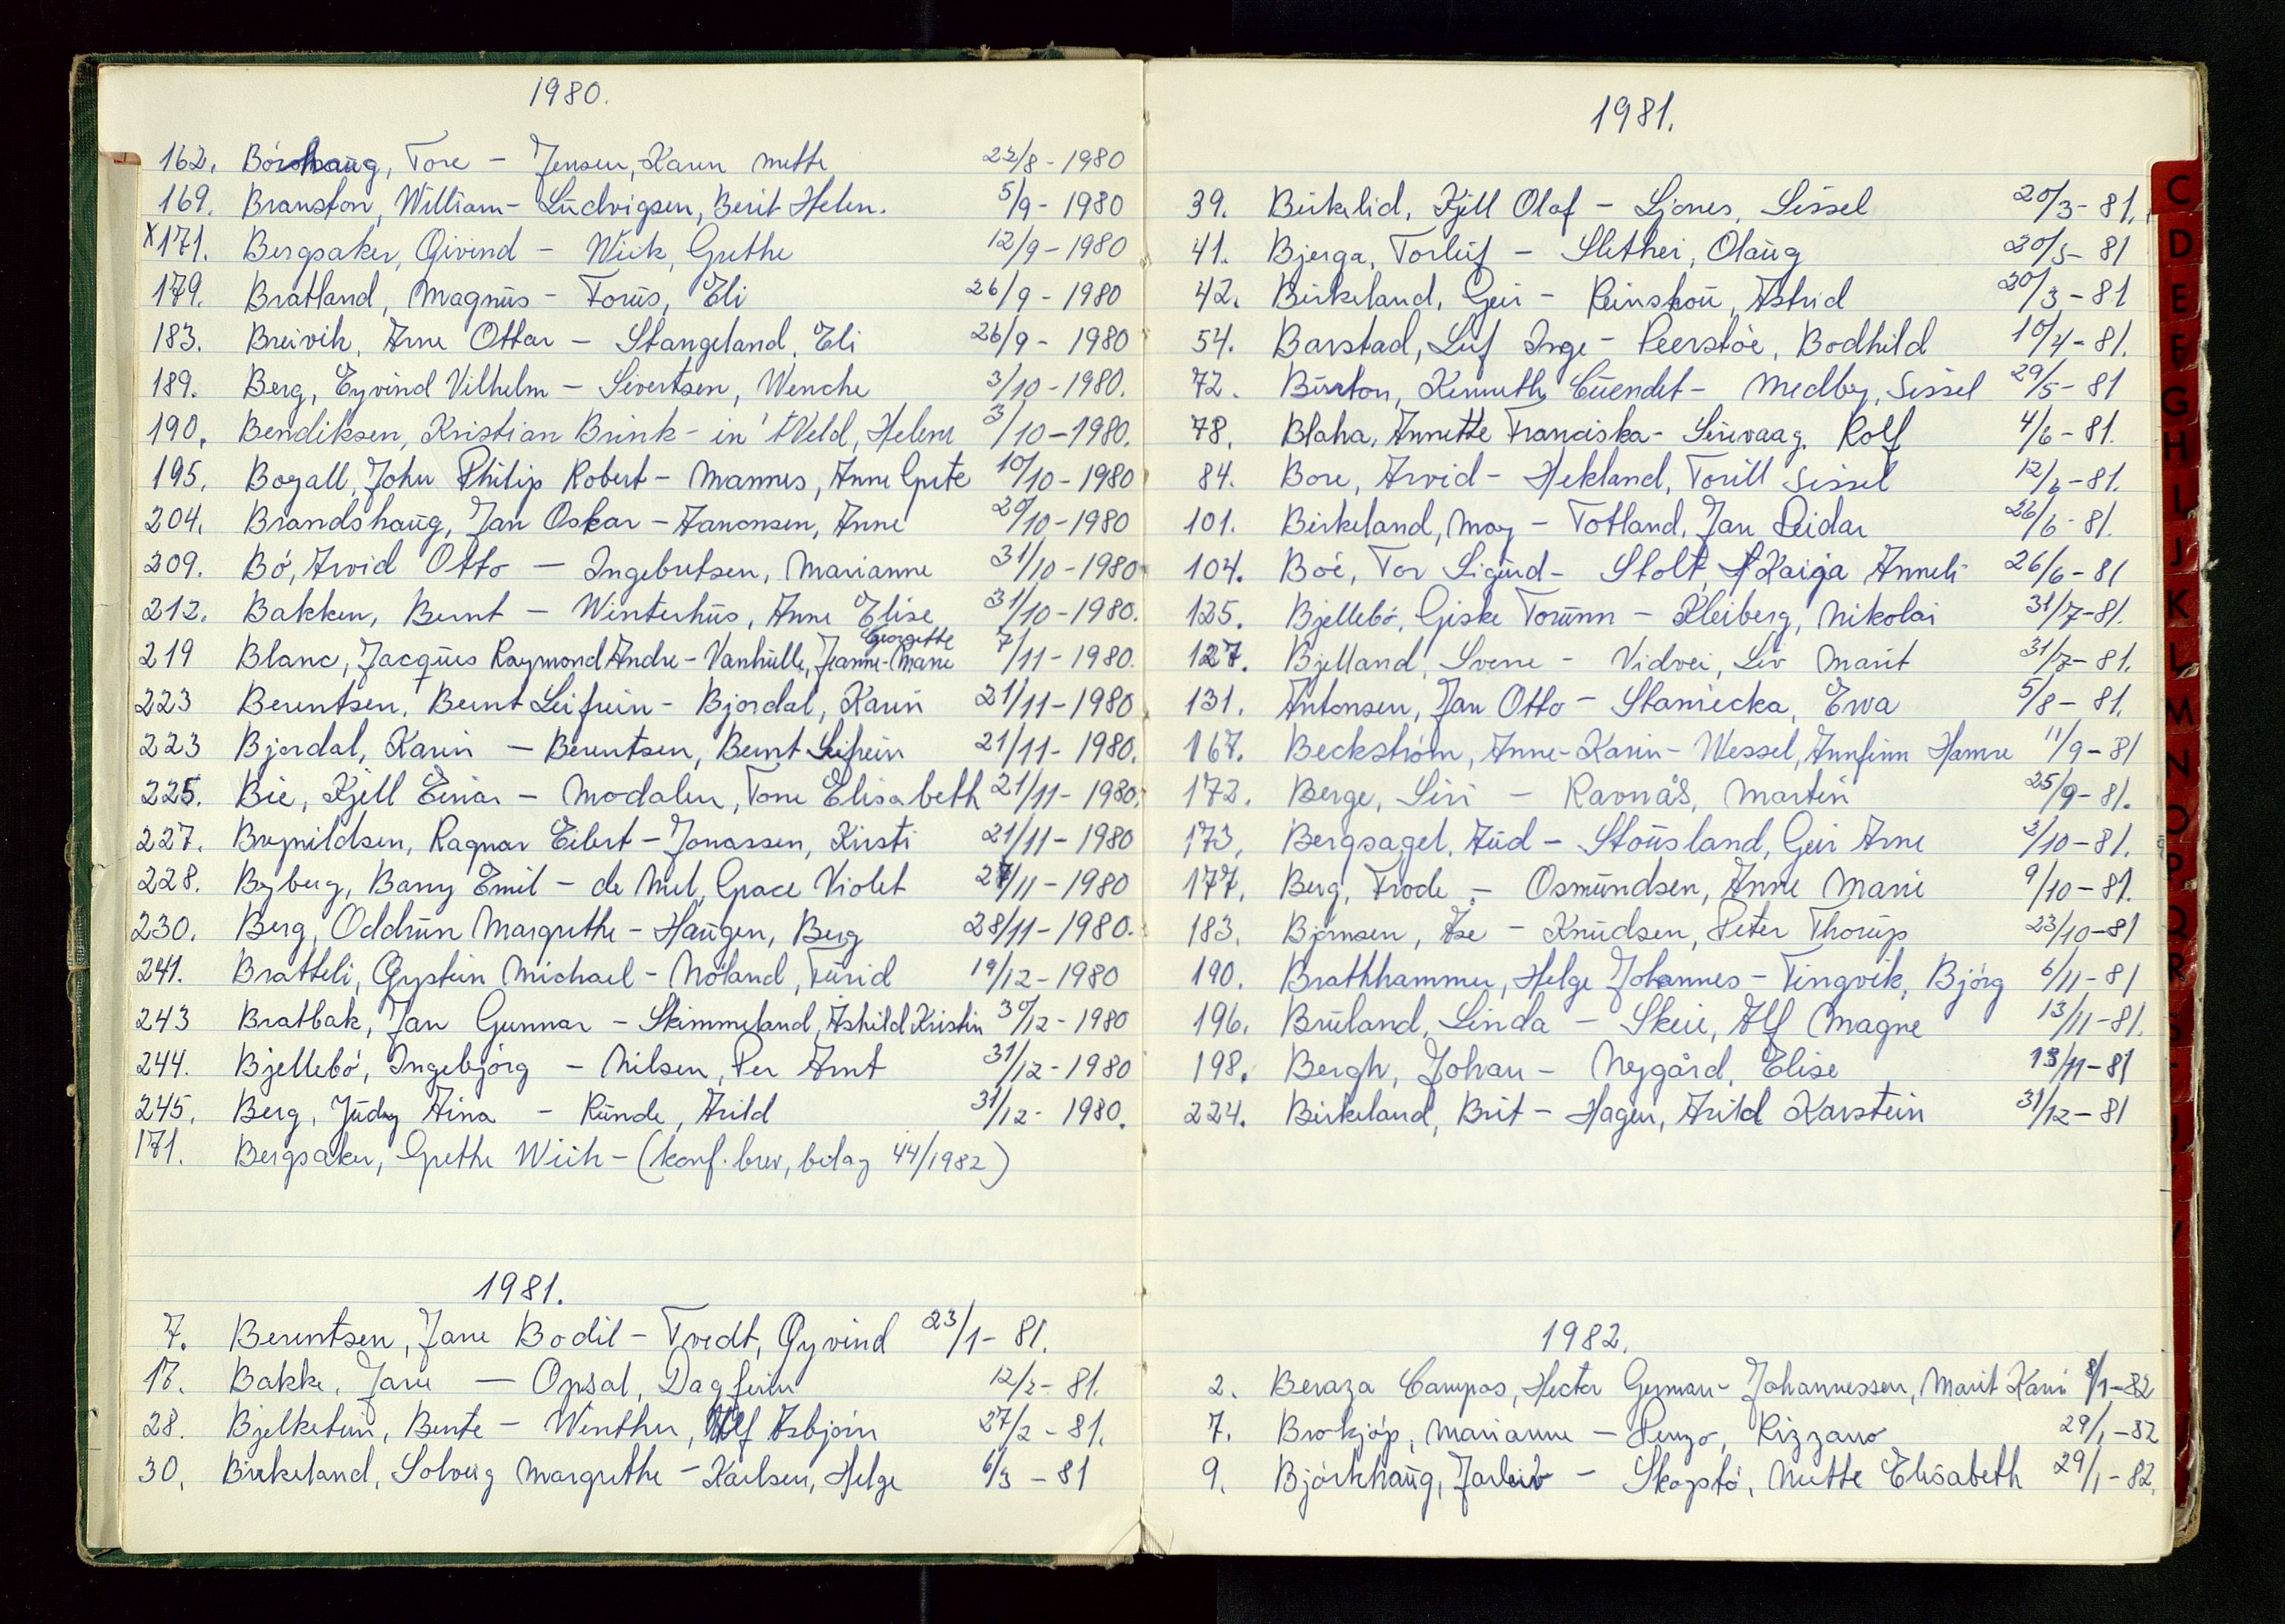 1980.
162. Bórshaug, Tore - Jensen, Karin Mette 22/8 - 1980
169. Branston, William - Ludvigsen, Berit Helen. 5/9 - 1980
X171. Bergsaker, Öivind - Wiik, Grethe 12/9 - 1980
179. Bratland, Magnus - Forus, Eli 26/9 - 1980
183. Breivik, Arne Ottar - Stangeland, Eli 26/9 - 1980
189. Berg, Eyvind Vilhelm - Sivertsen, Wenche 3/10 - 1980.
190. Bendiksen, Kristian Brink - in 't Veld, Helene 3/10 - 1980.
195. Bogall, John Philip Robert - Mannes, Anne Grete 10/10 - 1980
204. Brandshaug, Jan Oskar - Aanonsen, Anne 20/10 - 1980
209. Bó, Arvid Otto - Ingebretsen, Marianne 31/10 - 1980
212. Bakken, Bernt - Winterhus, Anne Elise 31/10 - 1980.
219 Blanc, Jacques Raymond Andre - Vanhulle, Jeanne-Marie Georgette 7/11 - 1980.
223 Berentsen, Bernt Leifrein - Bjordal, Karin 21/11 - 1980
223 Bjordal, Karin - Berentsen, Bernt Leifrein 21/11 - 1980.
225. Bie, Kjell Einar - Modalen, Tone Elisabeth 21/11 - 1980.
227. Brynildsen, Ragnar Eilert - Jonassen, Kirsti 21/11 - 1980
228. Byberg, Barry Emil - de Mel, Grace Violet 27/11 - 1980
230. Berg, Oddrun Margrethe - Haugen, Berg 28/11 - 1980.
241. Bratteli, Öystein Michael - Nóland, Turid 19/12 - 1980
243 Bratbak, Jan Gunnar - Skimmeland, Åshild Kristin 30/12 - 1980
244. Bjellebó, Ingebjórg - Nilsen, Per Arnt 31/12 - 1980
245. Berg, Judy Aina - Runde, Arild 31/12 - 1980.
171. Bergsaker, Grethe Wiik - (konf. brev, bilag 44/1982)
1981.
7. Berentsen, Jane Bodil - Tvedt, Öyvind 23/1 - 81.
17. Bakke, Jane - Opsal, Dagfinn 12/2 - 81.
28. Bjelketun, Bente - Winther, Alf Asbjórn 27/2 - 81.
30. Birkeland, Solveig Margrethe - Karlsen, Helge 6/3 - 81
1981.
39. Birkelid, Kjell Olaf - Ljones, Sissel 20/3 - 81.
41. Bjerga, Torleif - Slethei, Olaug 20/3 - 81
42. Birkeland, Geir - Reinskou, Astrid 20/3 - 81
54. Barstad, Leif Inge - Peerstöe, Bodhild 10/4 - 81.
72. Burton, Kenneth Cuendet - Medby, Sissel 29/5 - 81
78. Blaha, Annette Franciska - Sirevaag, Rolf 4/6 - 81.
84. Bore, Arvid - Hekland, Torill Sissel 12/6 - 81.
101. Birkeland, May - Totland, Jan Reidar 26/6 - 81.
104. Bóe, Tor Sigurd - Stolt, Kaija Anneli 26/6 - 81
125. Bjellebó, Giske Torunn - Kleiberg, Nikolai 31/7 - 81.
127. Bjelland, Sverre - Vidvei, Liv Marit 31/7 - 81.
131. Antonsen, Jan Otto - Staniecka, Ewa 5/8 - 81.
167. Beckstróm, Anne-Karin - Wessel, Annfinn Hamre 11/9 - 81
172. Berge, Siri - Ravnås, Martin 25/9 - 81.
173. Bergsagel, Aud - Stousland, Geir Arne 2/10 - 81.
177. Berg, Frode - Osmundsen, Anne Marie 9/10 - 81.
183. Bjórnsen, Åse - Knudsen, Peter Thorup 23/10 - 81
190. Brathhammer, Helge Johannes - Tingvik, Bjórg 6/11 - 81
196. Bruland, Linda - Skeie, Alf Magne 13/11 - 81.
198. Bergh, Johan - Nygård, Elise 13/11 - 81
224. Birkeland, Brit - Hagen, Arild Karstein 31/12 - 81
1982.
2. Beraza Campos, Hector German - Johannessen, Marit Karin 8/1 - 82
7. Brokjóp, Marianne - Renzo, Rizzano 29/1 - 82
9. Bjórkhaug, Jarleiv - Skoptó, Mette Elisabeth 29/1 - 82.
C
D
E
F
G
H
I
J
K
L
M
N
O
P
Q
R
S